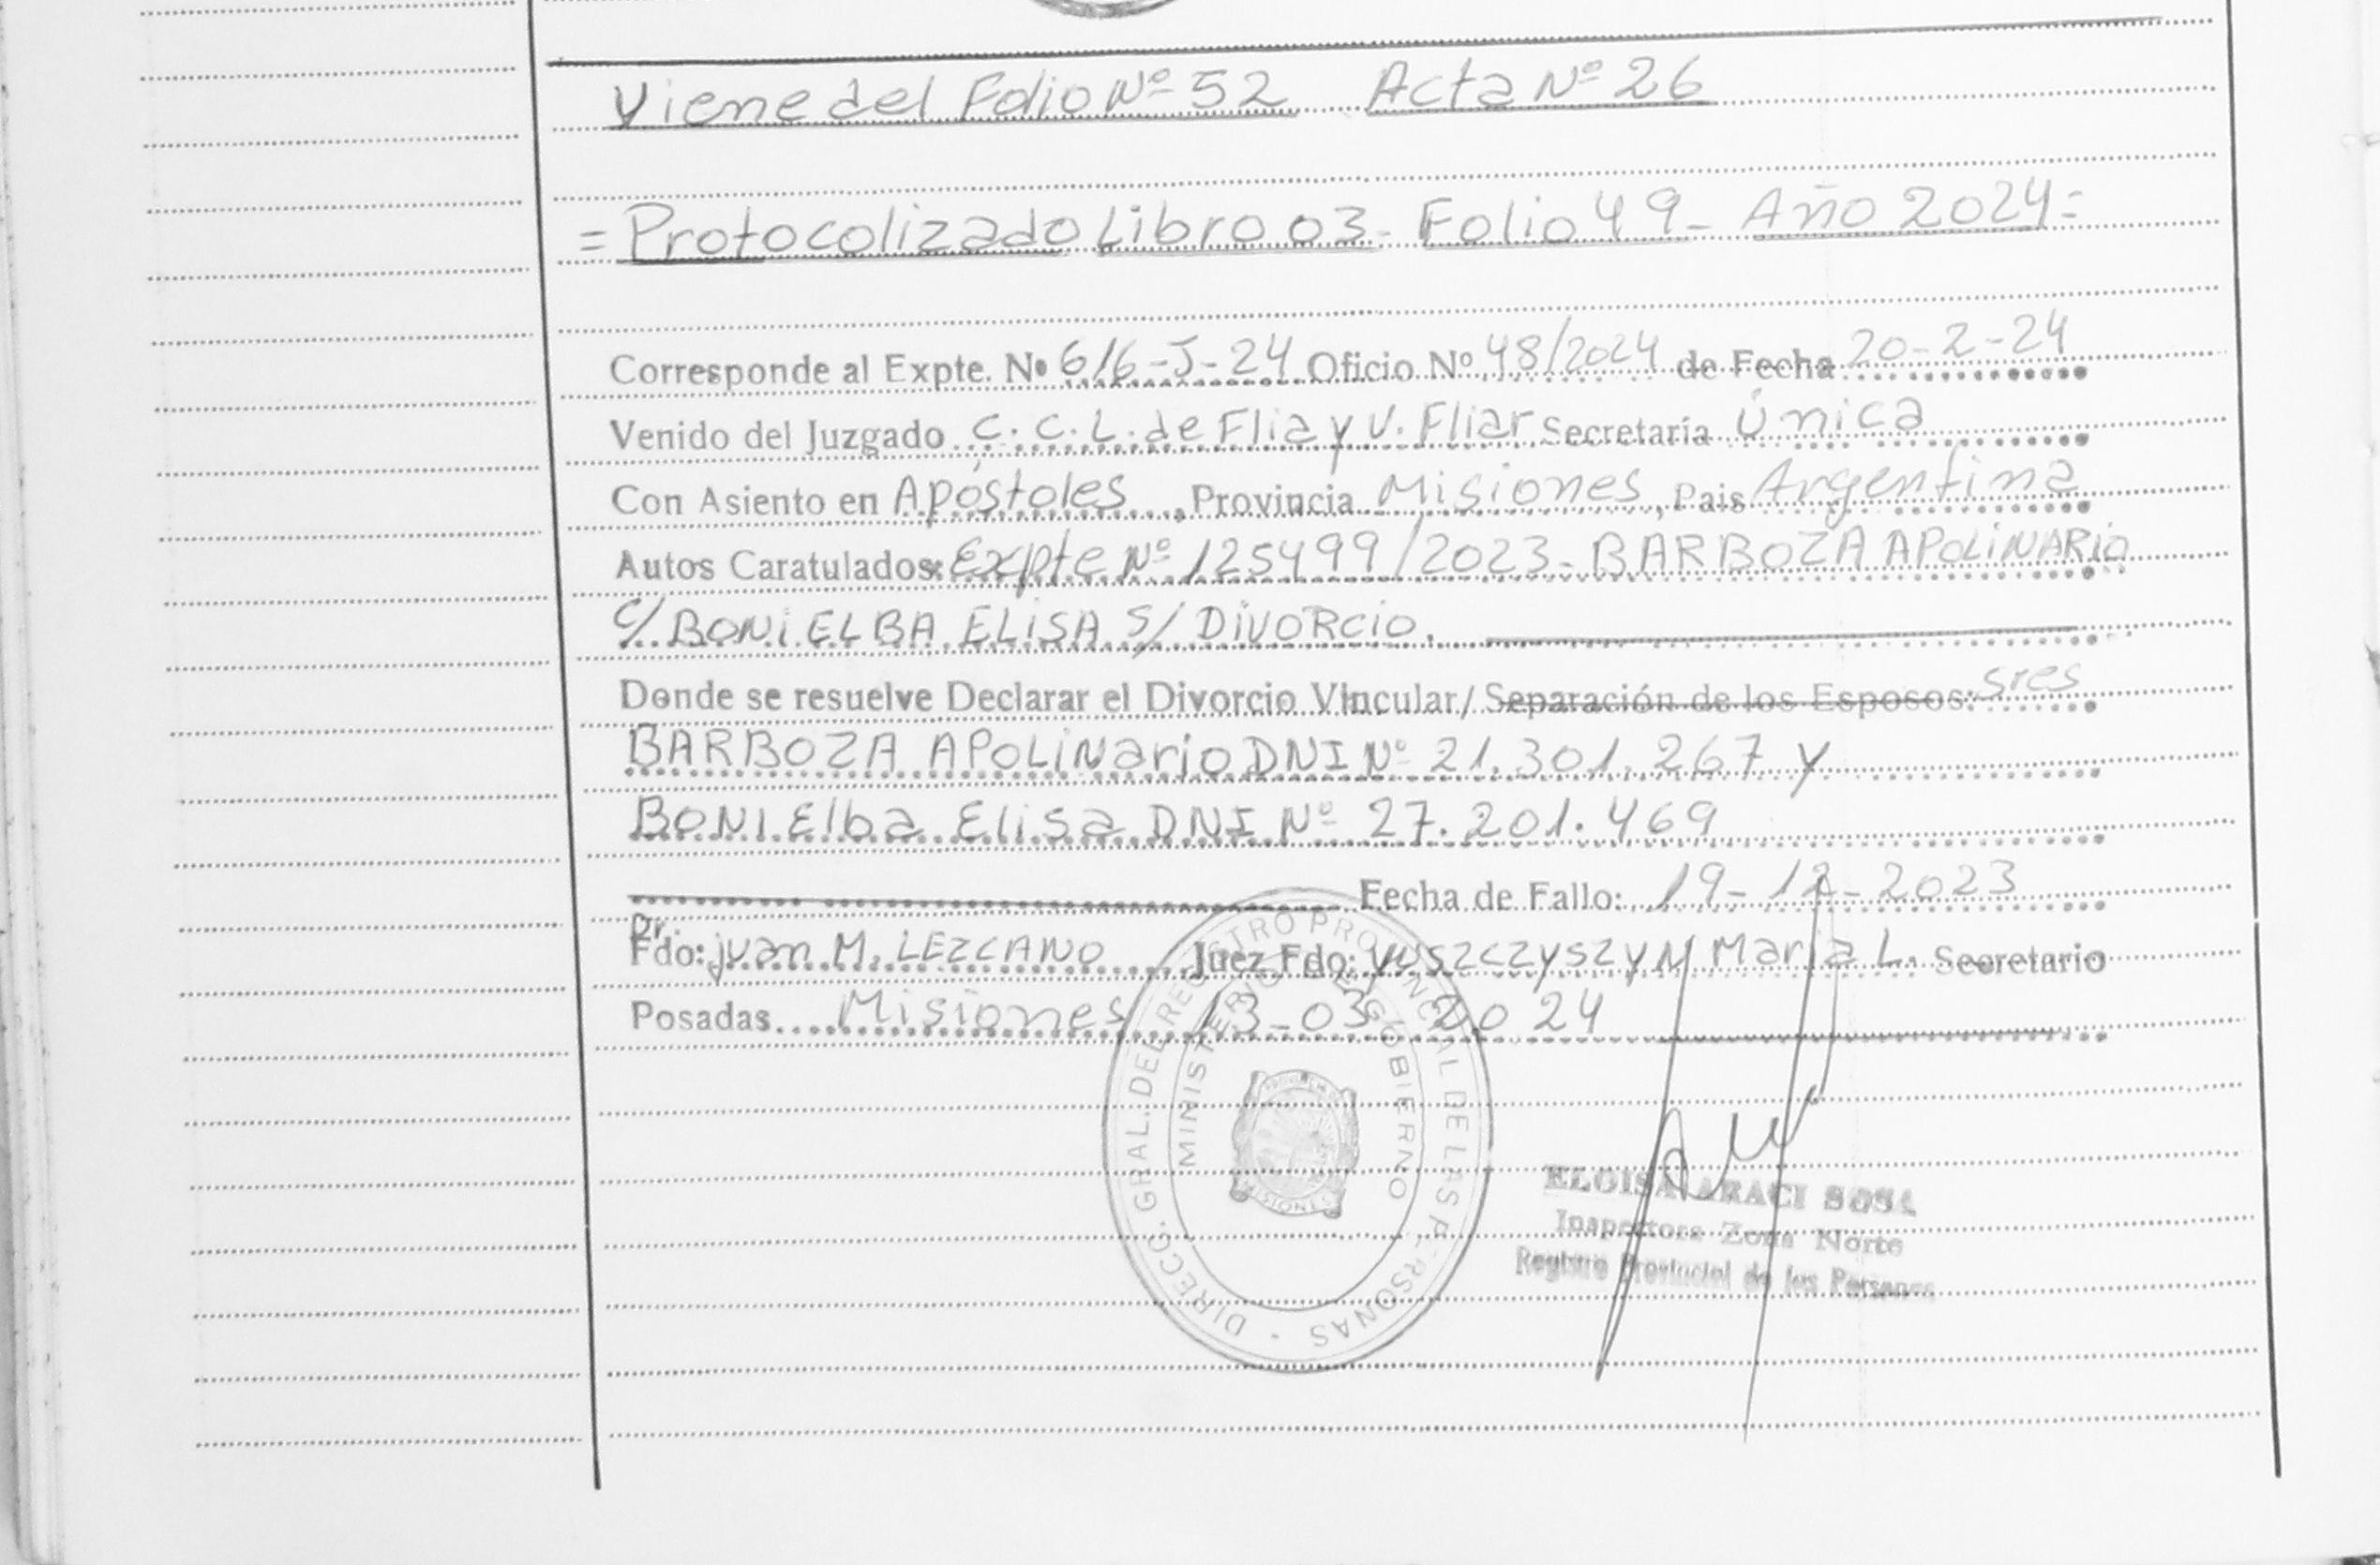 Viene del Folio Nº 52 Acta Nº 26
= Protocolizado Libro 03 - Folio 49 - Año 2024 =
Corresponde al Expte. Nº 616-J-24 Oficio Nº 48/2024 de Fecha 20-2-24
Venido del Juzgado C. C. L. de Flia y V. Fliar Secretaría Única
Con Asiento en Apóstoles, Provincia Misiones, Pais Argentina
Autos Caratulados: Expte Nº 125499/2023 - BARBOZA APOLINARIO
C/ BONI ELBA ELISA S/ DIVORCIO.
Donde se resuelve Declarar el Divorcio Vincular/ Separación de los Esposos: sres
BARBOZA APOLINArio DNI Nº 21.301.267 y
BONI Elba Elisa DNI Nº 27.201.469
Fecha de Fallo: 19-12-2023
Dr.
Fdo: juan M. LEZCANO Juez Fdo: YUSZCZYSZYN Maria L. Secretario
Posadas Misiones 13-03-2024
DIRECC. GRAL. DEL REGISTRO PROVINCIAL DE LAS PERSONAS -
MINISTERIO DE GOBIERNO
PROVINCIA DE
MISIONES
ELOISA ARACI SOSA
Inspectora Zona Norte
Registro Provincial de las Personas